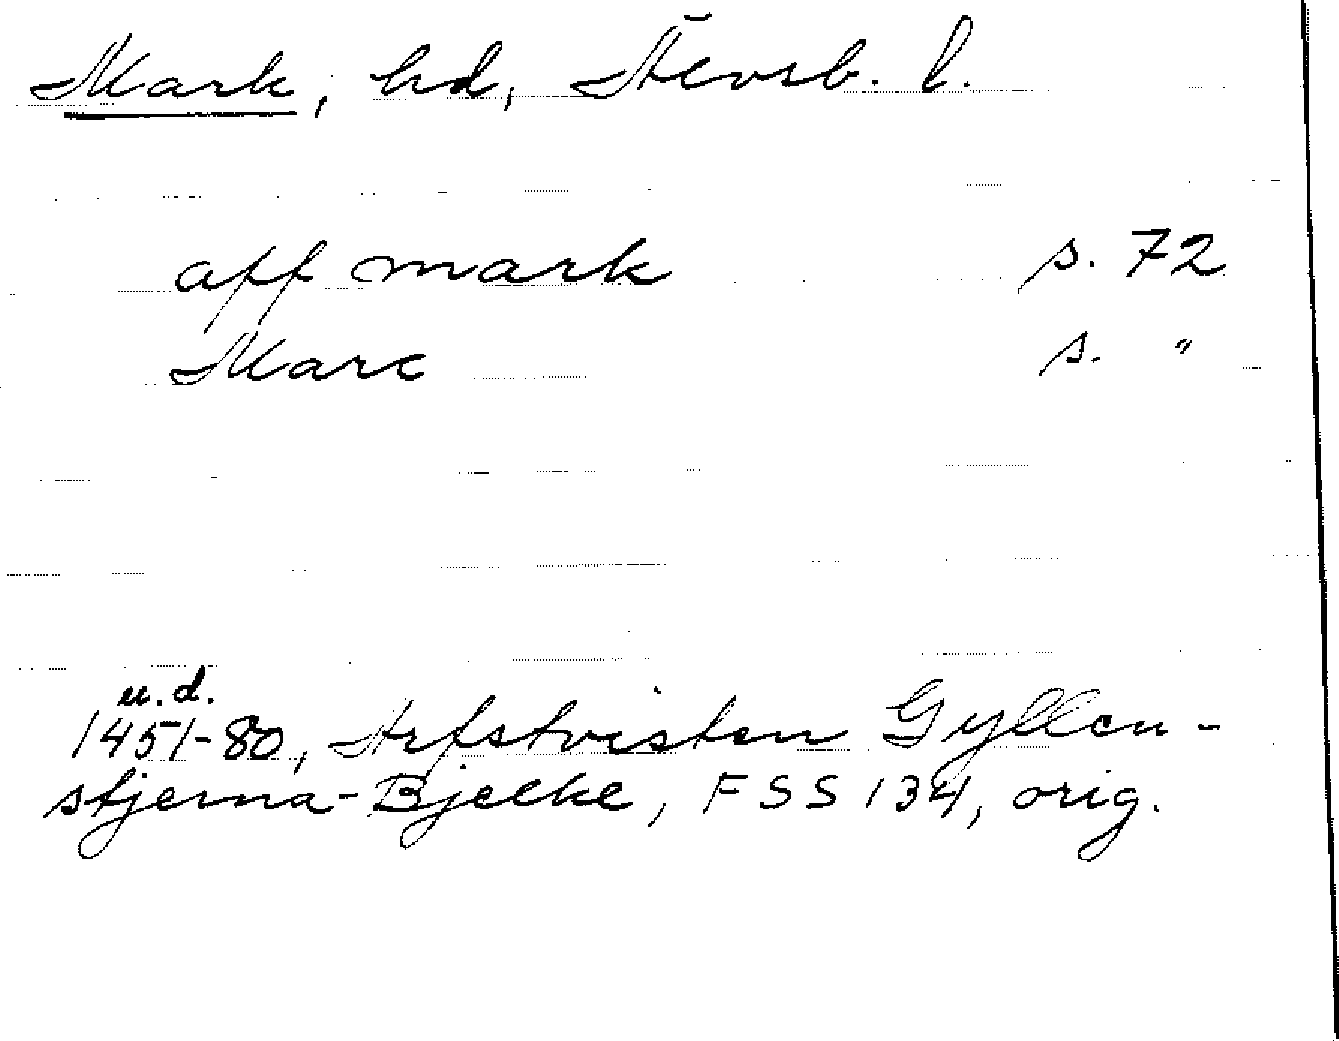 Mark, hd, Älvsb. l.
aff mark s. 72
Marc s. "
u.d.
1451-80, Arfstvisten Gyllen-
stjerna-Bjelke, FSS 134, orig.